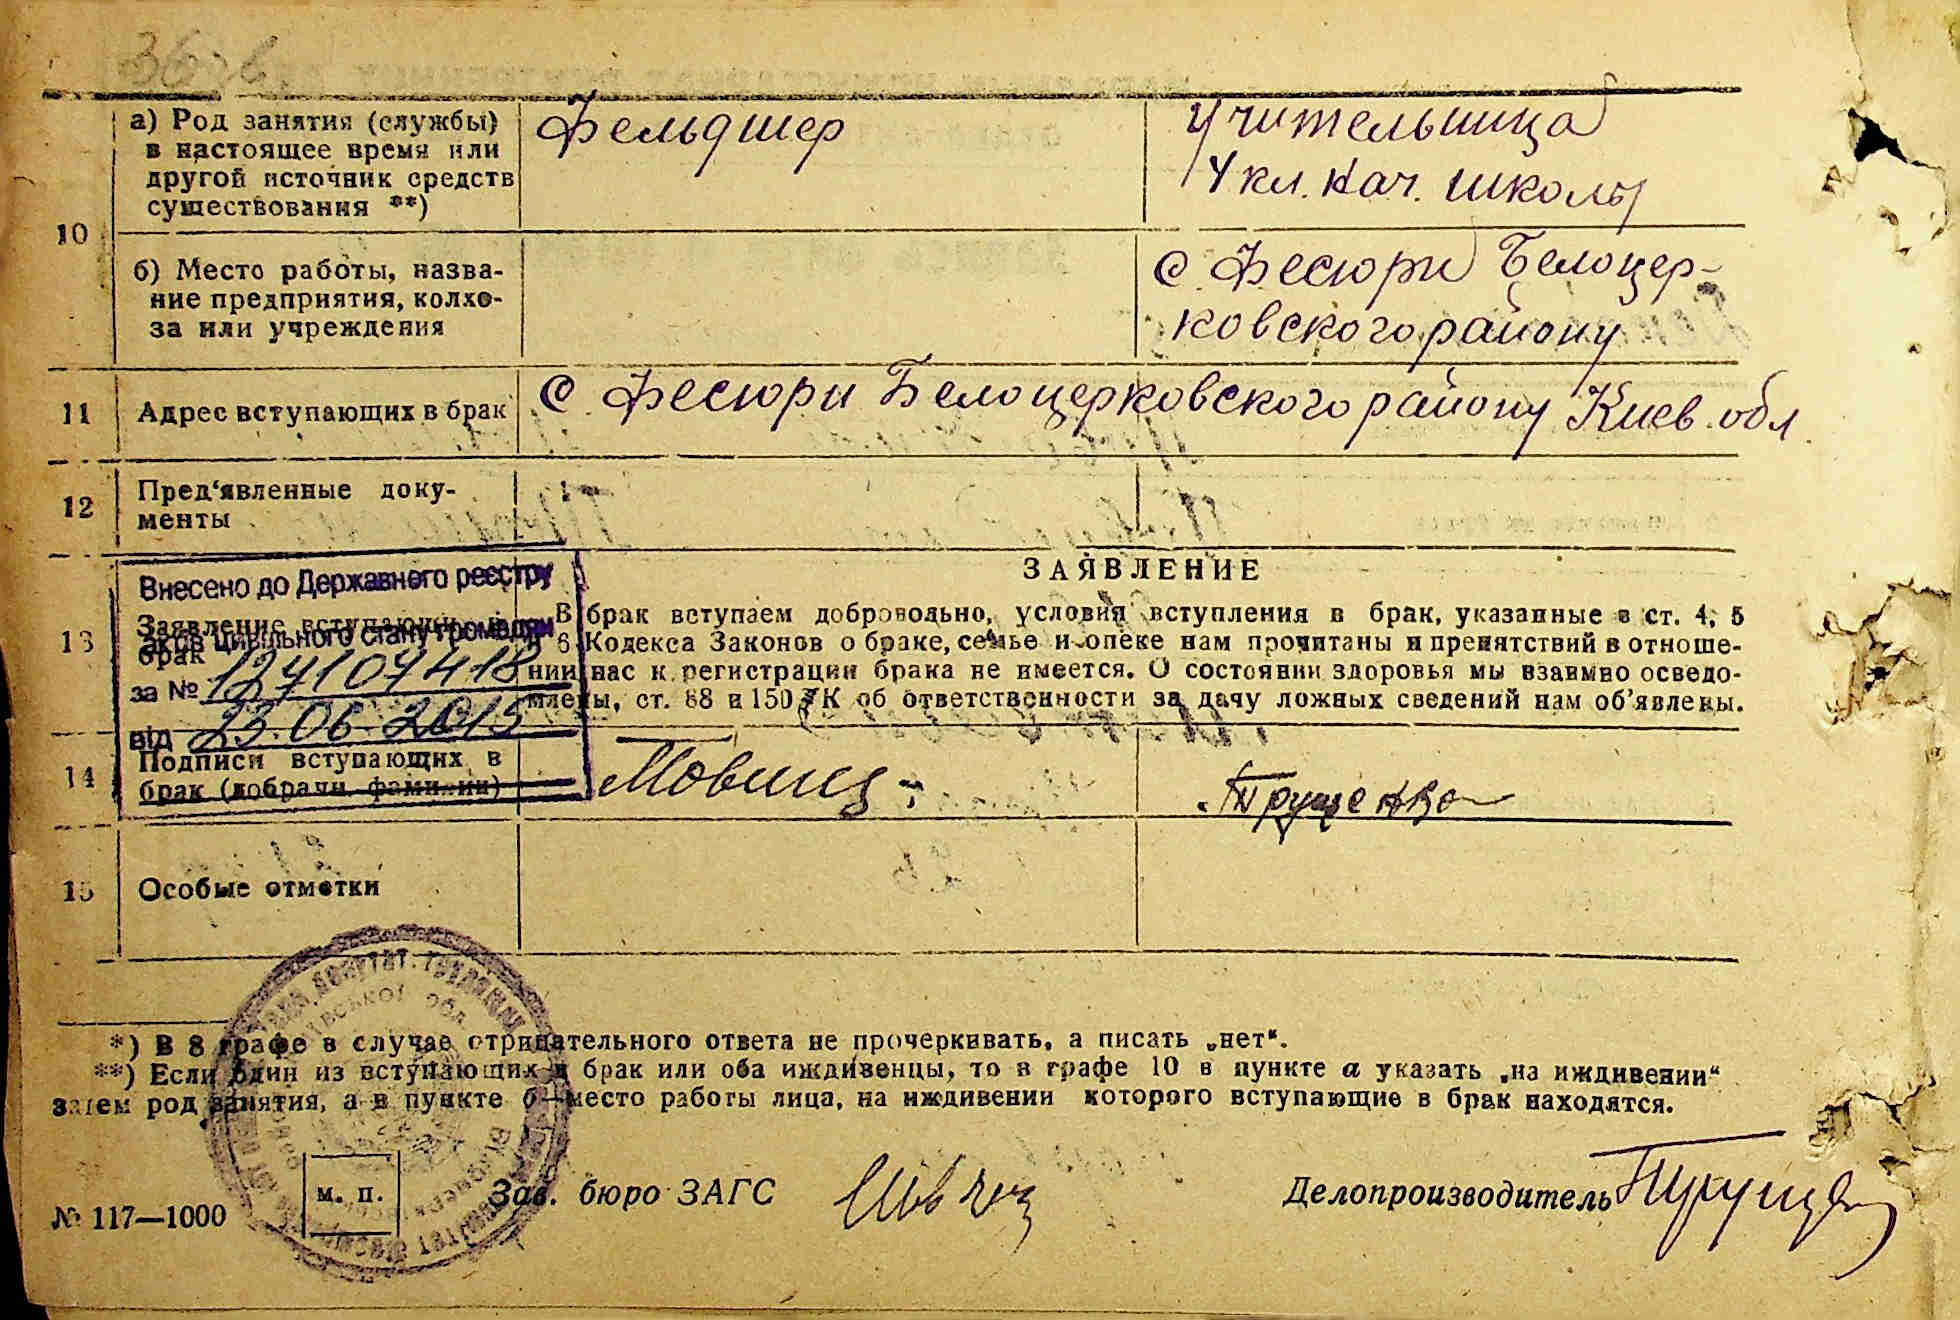 10
а) Род занятия (службы)
в настоящее время или
другой источник средств
существования **)
Фельдшер
Учительница
4 кл. нач. школы
б) Место работы, назва-
ние предприятия, колхо-
за или учреждения
с. Фесюри Белоцер-
ковского району
11
Адрес вступающих в брак
с. Фесюри Белоцерковского району Киев. обл.
12
Пред'явленные доку-
менты
13
Внесено до Державного реєстру
актів цивільного стану громадян
за №
від 23.06.2015
Заявление вступающих в
брак
ЗАЯВЛЕНИЕ
В брак вступаем добровольно, условия вступления в брак, указанные в ст. 4, 5
и 6 Кодекса Законов о браке, семье и опеке нам прочитаны и препятствий в отноше-
нии нас к регистрации брака не имеется. О состоянии здоровья мы взаимно осведо-
млены, ст. 88 и 150 УК об ответственности за дачу ложных сведений нам об'явлены.
14
Подписи вступающих в
брак (добрачн. фамилии)
15
Особые отметки
*) В 8 графе в случае отрицательного ответа не прочеркивать, а писать „нет“.
**) Если один из вступающих в брак или оба иждивенцы, то в графе 10 в пункте а указать „на иждивении“
затем род занятия, а в пункте б—место работы лица, на иждивении которого вступающие в брак находятся.
м. п.
№ 117—1000
Зав. бюро ЗАГС
Делопроизводитель